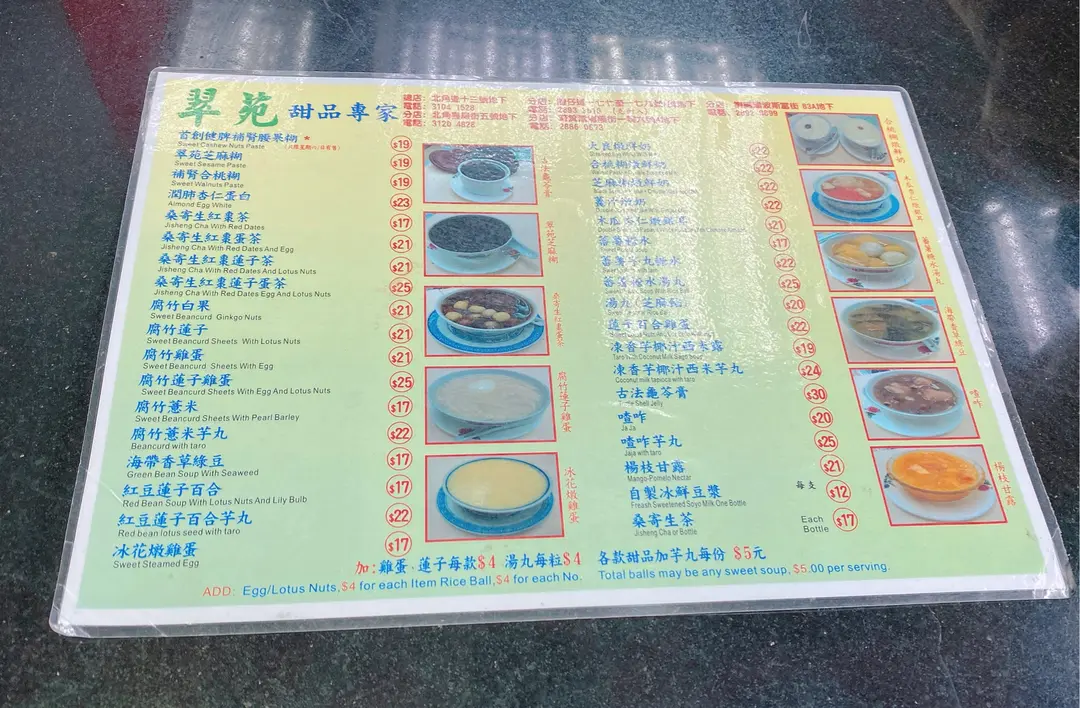 翠苑 甜品專家
總店：北角
電話：3104 1528
電話：3120 4826
分店：
電話：
首創健脾補腎腰果糊 * $19
Sweet Cashew Nuts Paste
翠苑芝麻糊 $19
Sweet Sesame Paste
補腎合桃糊 $19
Sweet Walnuts Paste
潤肺杏仁蛋白 $23
Almond Egg White
桑寄生紅棗茶 $17
Jisheng Cha With Red Dates
桑寄生紅棗蛋茶 $21
Jisheng Cha With Red Dates And Egg
桑寄生紅棗蓮子茶 $21
Jisheng Cha With Red Dates And Lotus Nuts
桑寄生紅棗蓮子蛋茶 $25
Jisheng Cha With Red Dates Egg And Lotus Nuts
腐竹白果 $21
Sweet Beancurd Ginkgo Nuts
腐竹蓮子 $21
Sweet Beancurd Sheets With Lotus Nuts
腐竹雞蛋 $21
Sweet Beancurd Sheets With Egg
腐竹蓮子雞蛋 $25
Sweet Beancurd Sheets With Egg And Lotus Nuts
腐竹薏米 $17
Sweet Beancurd Sheets With Pearl Barley
腐竹薏米芋丸 $22
Beancurd with taro
海帶香草綠豆 $17
Green Bean Soup With Seaweed
紅豆蓮子百合 $17
Red Bean Soup With Lotus Nuts And Lily Bulb
紅豆蓮子百合芋丸 $22
Red bean lotus seed with taro
冰花燉雞蛋 $17
Sweet Steamed Egg
古法龜苓膏
翠苑芝麻糊
桑寄生紅棗蛋茶
腐竹蓮子雞蛋
冰花燉雞蛋
大良燉鮮奶 $22
合桃糊燉鮮奶 $22
芝麻糊燉鮮奶 $22
薑汁燉奶 $22
木瓜杏仁燉 $21
蕃薯糖水 $17
蕃薯芋丸糖水 $22
蕃薯糖水湯丸 $25
湯丸 $20
蓮子百合雞蛋 $22
凍香芋椰汁西米露 $19
Taro With Coconut Milk Sago Soup
凍香芋椰汁西米芋丸 $24
Coconut milk tapioca with taro
古法龜苓膏 $30
Shell Jelly
喳咋 $20
Ja Ja
喳咋芋丸 $25
Jaja with taro
楊枝甘露 $21
Mango-Pomelo Nectar
自製冰鮮豆漿 每支 $12
Freash Sweetened Soyo Milk One Bottle
桑寄生茶 Each Bottle $17
Jisheng Cha or Bottle
合桃糊燉鮮奶
蕃薯糖水湯丸
海帶香草綠豆
喳咋
楊枝甘露
加:雞蛋.蓮子每款$4 湯丸每粒$4 各款甜品加芋丸每份 $5元
ADD: Egg/Lotus Nuts,$4 for each Item Rice Ball,$4 for each No. Total balls may be any sweet soup, $5.00 per serving.